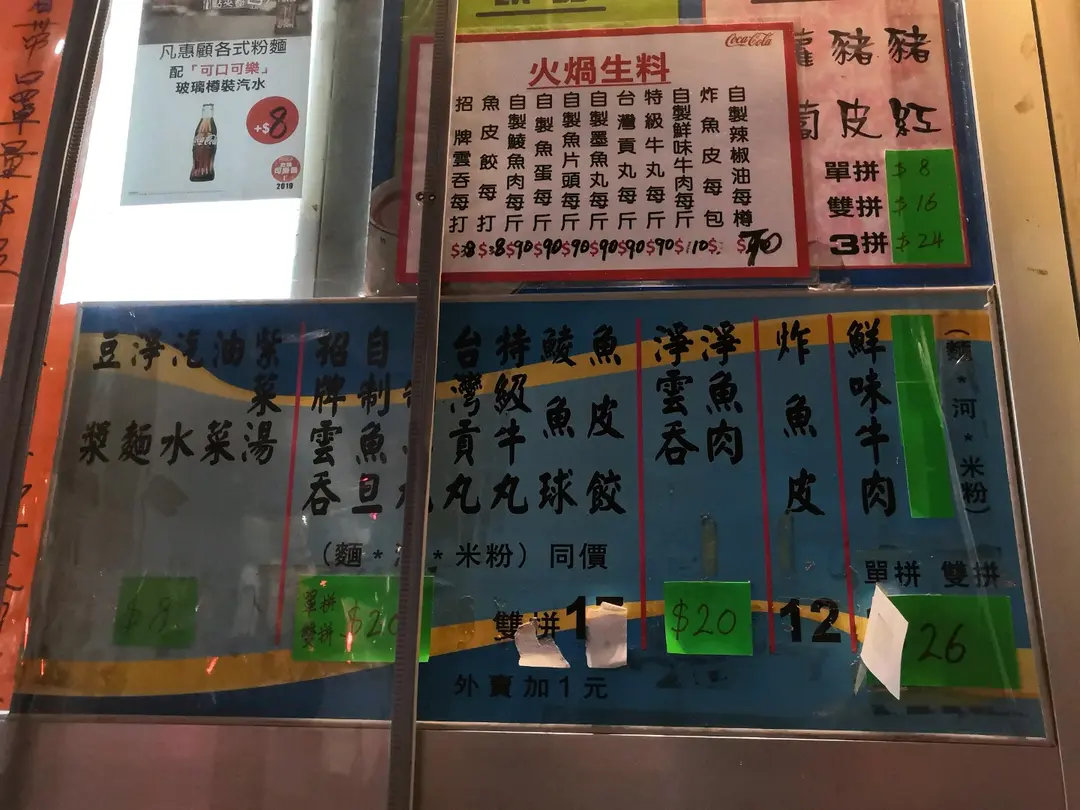 凡惠顧各式粉麵
配「可口可樂」
玻璃樽裝汽水
+$8
2019
Coca-Cola
火焗生料
招牌雲吞每打 $38
魚皮餃每打 $38
自製鯪魚肉每斤 $90
自製魚蛋每斤 $90
自製魚片頭每斤 $90
自製墨魚丸每斤 $90
台灣貢丸每斤 $90
特級牛丸每斤 $90
自製鮮味牛肉每斤 $110
炸魚皮每包 $
自製辣椒油每樽
豬紅
豬皮
單拼 $8
雙拼 $16
3拼 $24
鮮味牛肉
(麵*河*米粉)
單拼 雙拼
26
炸魚皮
12
淨魚肉
淨雲吞
$20
魚皮餃
鯪魚球
特級牛丸
台灣貢丸
自制魚旦
招牌雲吞
*米粉)同價
單拼
雙拼
$20
雙拼
外賣加1元
紫菜湯
油菜
汽水
淨麵
豆漿
$8